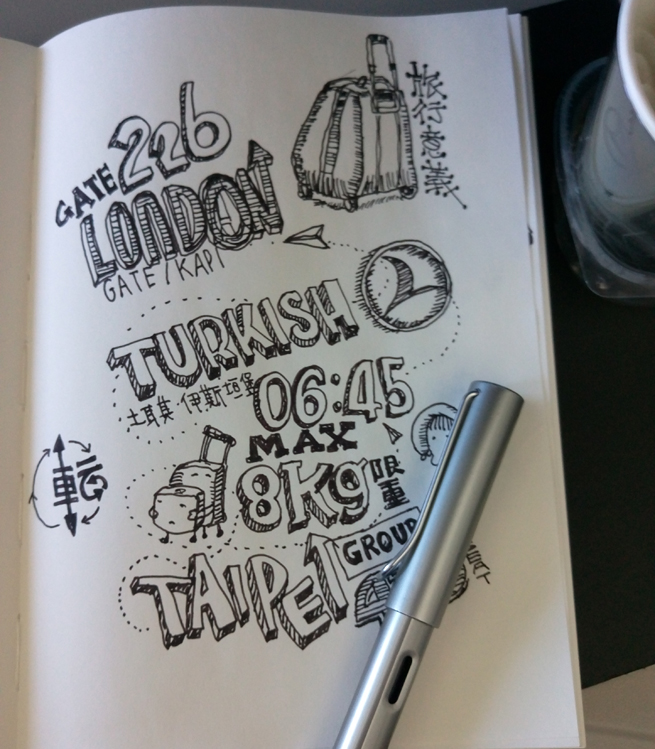 旅行意識
GATE 226
LONDON
GATE / KAPI
TURKISH
土耳其 伊斯坦堡
06:45
MAX
8Kg 限重
転
TAIPEI
GROUP